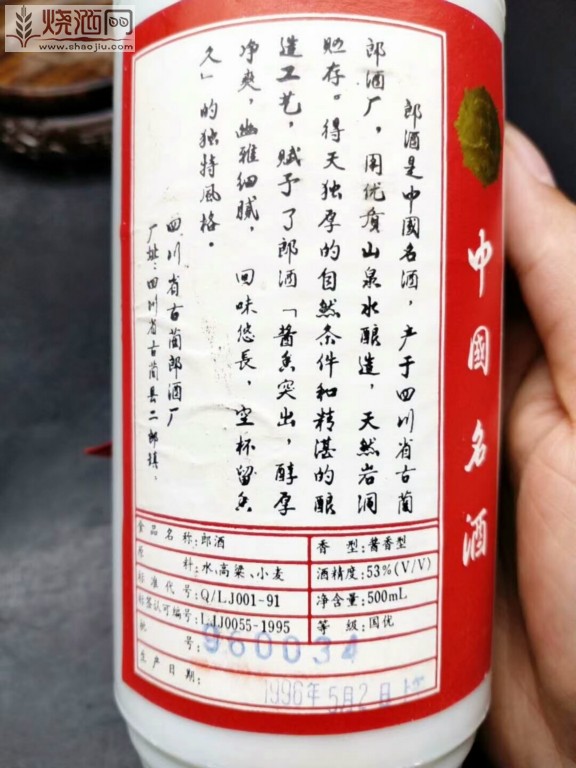 烧酒网
www.shaojiu.com
中國名酒
郎酒是中國名酒，产于四川省古蔺
郎酒厂，用优质山泉水酿造，天然岩洞
贮存。得天独厚的自然条件和精湛的酿
造工艺，赋予了郎酒「醬香突出，醇厚
净爽，幽雅细腻，回味悠長，空杯留香
久」的独特風格。
四川省古蔺郎酒厂
厂址：四川省古蔺县二郎镇。
食品名称:郎酒
香型:酱香型
原料:水、高粱、小麦
酒精度:53%(V/V)
标准代号:Q/LJ001-91
净含量:500mL
标签认可编号:LJJ0055-1995
等级:国优
批号:960034
生产日期:1996年5月2日